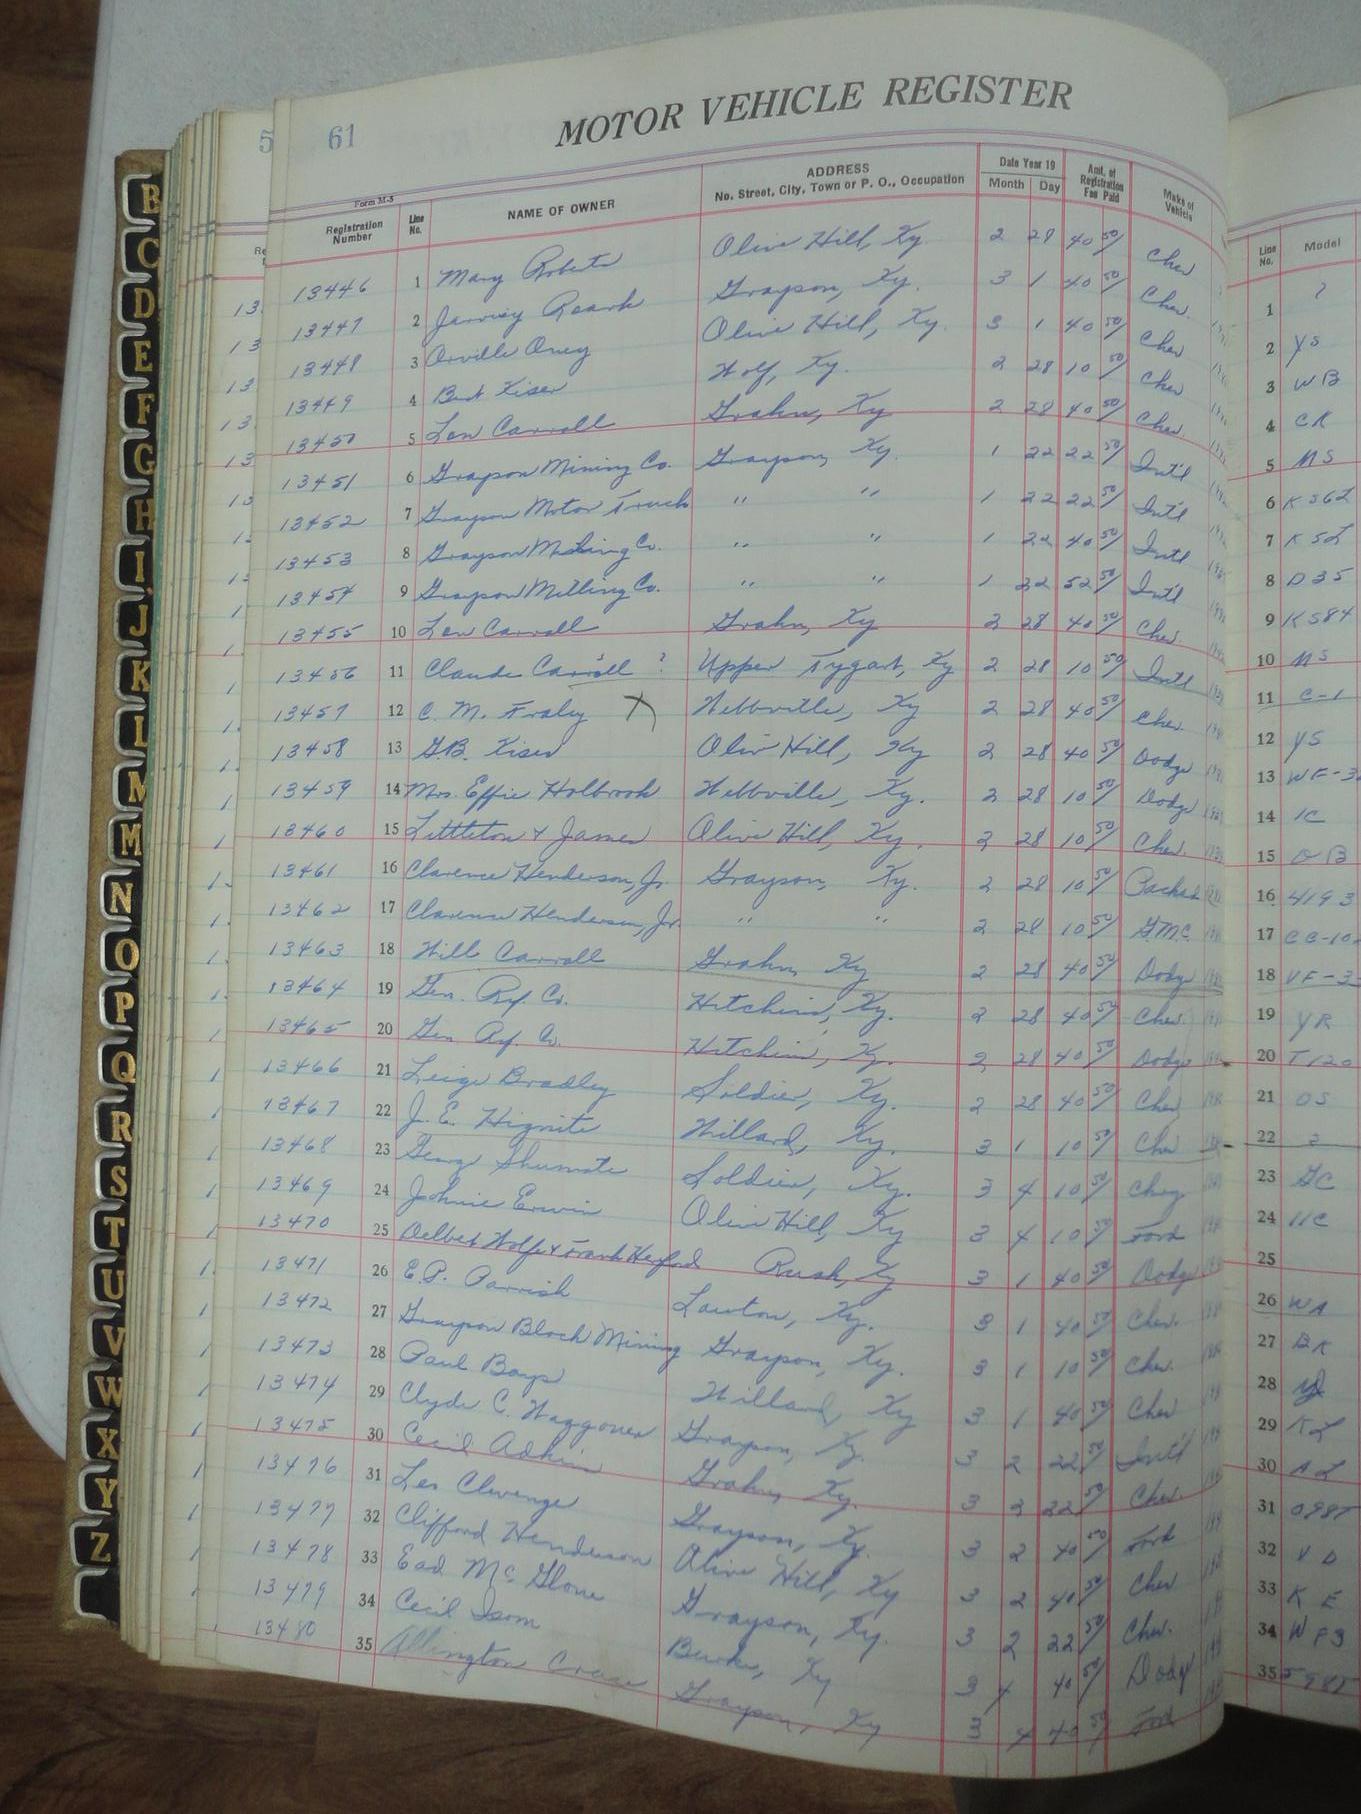 61 MOTOR VEHICLE REGISTER
Form M-5
Registration Number Line No. NAME OF OWNER ADDRESS No. Street, City, Town or P. O., Occupation Date Year 19 Month Day Amt. of Registration Fee Paid Make of Vehicle Line No. Model
13446 1 Mary Roberts Olive Hill, Ky. 2 28 40 50 Chev 1 ?
13447 2 Roark Grayson, Ky. 3 1 40 50 Chev. 2 YS
13448 3 Orville Oney Olive Hill, Ky. 3 1 40 50 Chev 3 WB
13449 4 Burt Kiser Wolf, Ky. 2 28 10 50 Chev 4 CK
13450 5 Lon Carroll Grahn, Ky 2 28 40 50 Chev. 5 MS
13451 6 Grayson Mining Co. Grayson, Ky. 1 22 22 50 Int'l 6
13452 7 Grayson Motor Truck " " 1 22 22 50 Int'l 7
13453 8 Grayson Co. " " 1 22 40 50 Intl 8 D35
13454 9 Grayson Milling Co. " " 1 22 52 50 Int'l 9 K584
13455 10 Lon Carroll Grahn, Ky 2 28 40 50 Chev 10 MS
13456 11 Claude Carroll ? Upper Tygart, Ky 2 28 10 50 Intl 11 C-1
13457 12 C. M. Fraley X Webbville, Ky 2 28 40 50 Chev. 12 YS
13458 13 G.B. Kiser Olive Hill, Ky 2 28 40 50 Dodge 13 WF-3
13459 14 Mrs. Effie Holbrook Webbville, Ky. 2 28 10 50 Dodge 14 1C
13460 15 Littleton & James Olive Hill, Ky. 2 28 10 50 Chev. 15 OB
13461 16 Clarence Henderson, Jr. Grayson, Ky. 2 28 10 50 Packard 16 4193
13462 17 Clarence Henderson, Jr. " " 2 28 10 50 GMC 17 CC-10
13463 18 Will Carroll Grahn, Ky 2 28 40 50 Dodge 18 VF-3
13464 19 Gen. Ref Co. Hitchins, Ky. 2 28 40 50 Chev. 19 YR
13465 20 Gen Ref. Co. Hitchins, Ky. 2 28 40 50 Dodge 20 T120
13466 21 Leige Bradley Soldier, Ky. 2 28 40 50 Chev 21 OS
13467 22 J. E. Hignite Willard, Ky. 3 1 10 50 Chev 22 ?
13468 23 Shumate Soldier, Ky. 3 4 10 50 23 GC
13469 24 Johnie Erwin Olive Hill, Ky 3 4 10 50 Ford 24 11C
13470 25 Delbert Wolfe & Frank Rush, Ky 3 1 40 50 Dodge 25
13471 26 E.P. Parrish Lawton, Ky. 3 1 40 50 Chev. 26 WA
13472 27 Grayson Block Mining Grayson, Ky. 3 1 10 50 Chev. 27 BK
13473 28 Paul Bays Willard, Ky 3 1 40 50 Chev 28
13474 29 Clyde C. Waggoner Grayson, Ky. 3 2 22 50 Int'l 29 KL
13475 30 Cecil Adkins Grahn, Ky. 3 2 22 50 Chev. 30 AL
13476 31 Les Clevenger Grayson, Ky. 3 2 40 50 Ford 31 098T
13477 32 Clifford Henderson Olive Hill, Ky 3 2 40 50 Chev 32 VD
13478 33 Ead McGlone Grayson, Ky. 3 2 22 50 Chev. 33 KE
13479 34 Cecil Isom Ky 3 4 40 50 Dodge 34 WF3
13480 35 Grayson, Ky 3 4 40 50 Ford 35 598T
B
C
D
E
F
G
H
I
J
K
L
M
M
N
O
P
Q
R
S
T
U
V
W
X
Y
Z